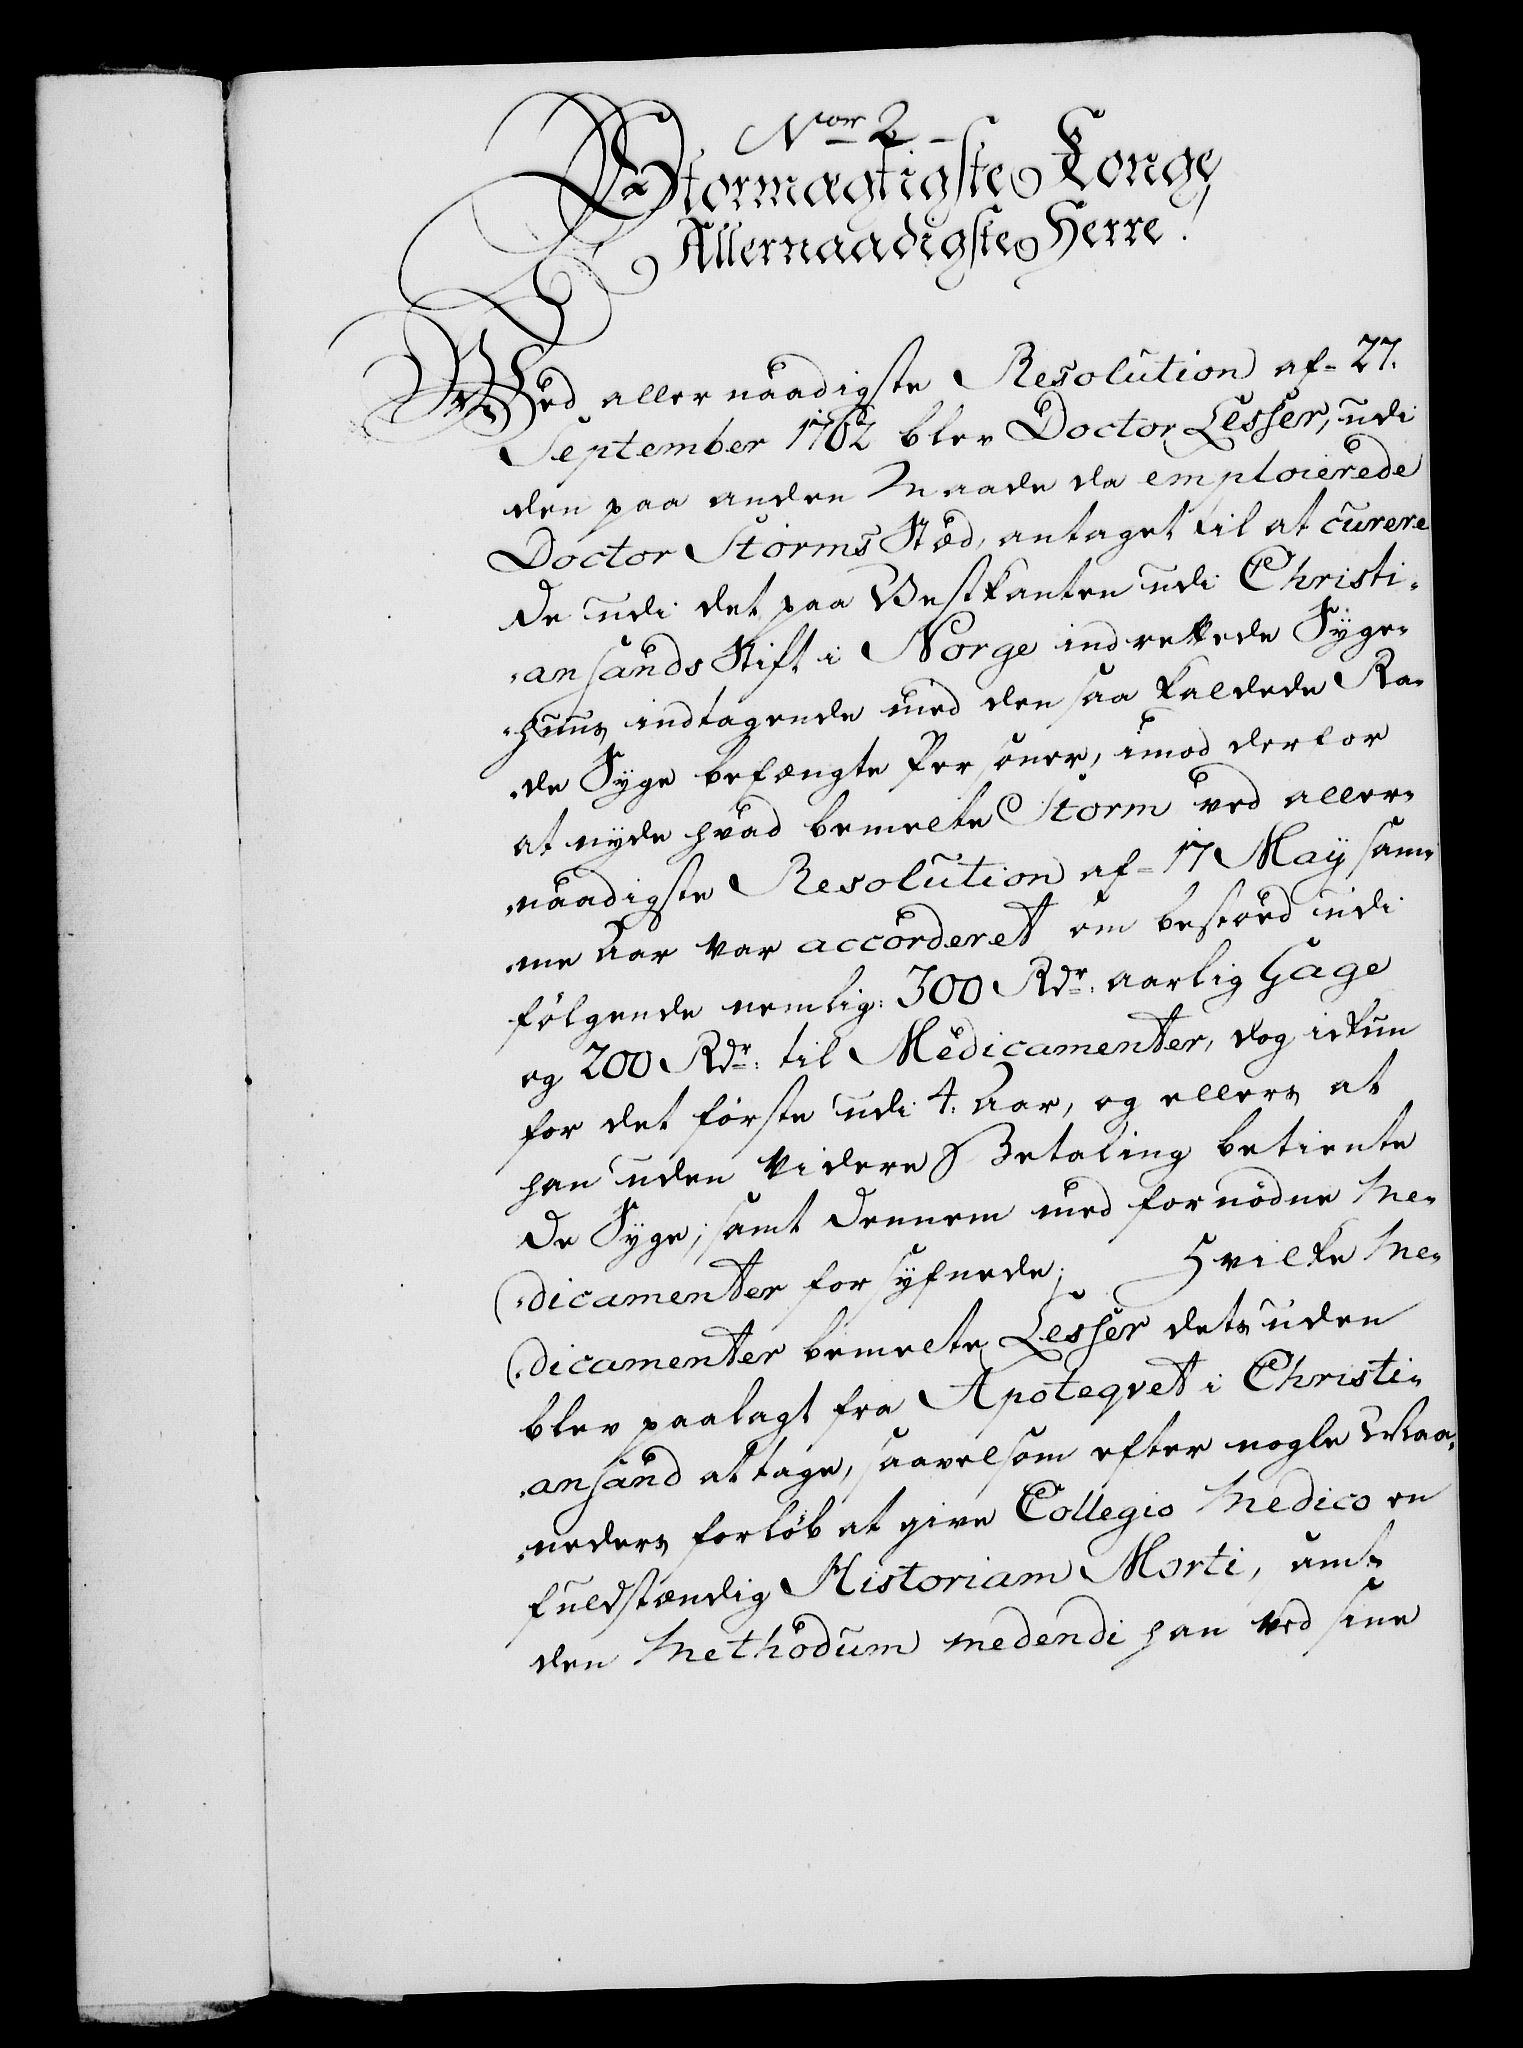 Nor 2
Stormægtigste Konge
Allernaadigste Herre!
Ved allernaadigste Resolution af 27.
September 1762 blev Doctor Lesser, udi
den paa anden Maade da emploierede
Doctor Storms Stæd, antaget til at curere
De udi det paa Vestkanten udi Christi-
-ansands Stift i Norge indrettede Syge-
-huus indtagende med den saa kaldede Ra-
-de Syge befængte Personer, imod derfor
at nyde hvad bemelte Storm ved aller-
-naadigste Resolution af 17 May sam-
-me Aar var accorderet om bestoed udi
følgende nemlig: 300 Rdr. aarlig Gage
og 200 Rdr. til Medicamenter, dog ickun
for det første udi 4. Aar, og ellers at
han uden videre Betaling betiente
De Syge, samt Dennem med fornødne Me-
-dicamenter forsyfnede; Hvilke Me-
-dicamenter bemelte Lesser dets uden
blev paalagt fra Apoteqvet i Christi-
-ansand at tage, saavelsom efter nogle Maa-
-neders forløb at give Collegio Medico en
fuldstændig Historiam Morti, samt
den Methodum medendi han ved sine